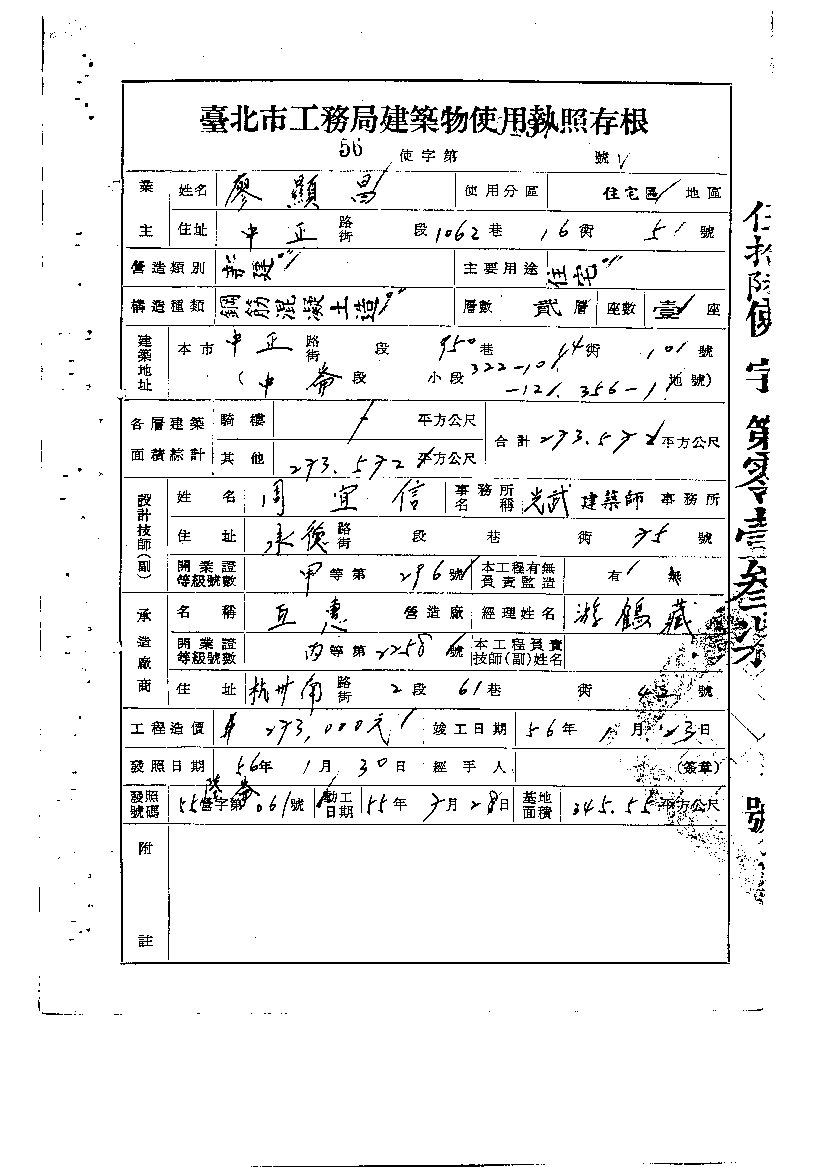 臺北市工務局建築物使用執照存根
56 使字第 號
業主 姓名 廖顯昌 使用分區 住宅區 地區
住址 中正 路街 段 1062巷 16衖 51號
營造類別 新建 主要用途 住宅
構造種類 鋼筋混凝土造 層數 貳層 座數 壹座
建築地址 本市 中正 路街 段 950巷 44衖 101號
(中崙段 小段 322-101 -121. 356-11 地號)
各層建築面積綜計 騎樓 平方公尺 合計 273.572 平方公尺
其他 273.572 平方公尺
設計技師(副) 姓名 周宜信 事務所名稱 光武建築師事務所
住址 永德 路街 段 巷 衖 35號
開業證等級號數 甲等第296號 本工程有無負責監造 有 無
承造廠商 名稱 互惠 營造廠 經理姓名 游鶴藏
開業證等級號數 丙等第2258號 本工程負責技師(副)姓名
住址 杭州南 路街 2段 61巷 衖 42號
工程造價 273,000元 竣工日期 56年1月23日
發照日期 56年1月30日 經手人 (簽章)
發照號碼 55營字第061號 動工日期 55年7月28日 基地面積 345.55平方公尺
附註
伍拾陸使字第零壹叁 號